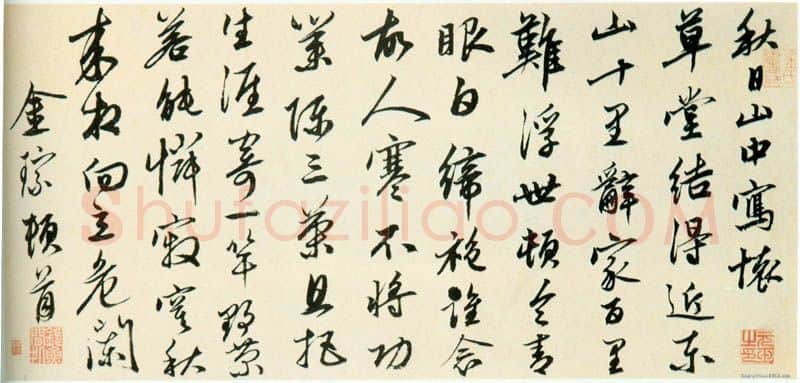 秋日山中寫懷
草堂結得近东
山十里辭家百里
難浮世頓令青
眼白綈袍誰念
故人寒不將功
業陈三策且把
生涯寄一竿野菊
若能憐寂寞秋
来相向立危闌
金琮頓首
Shufaziliao.COM